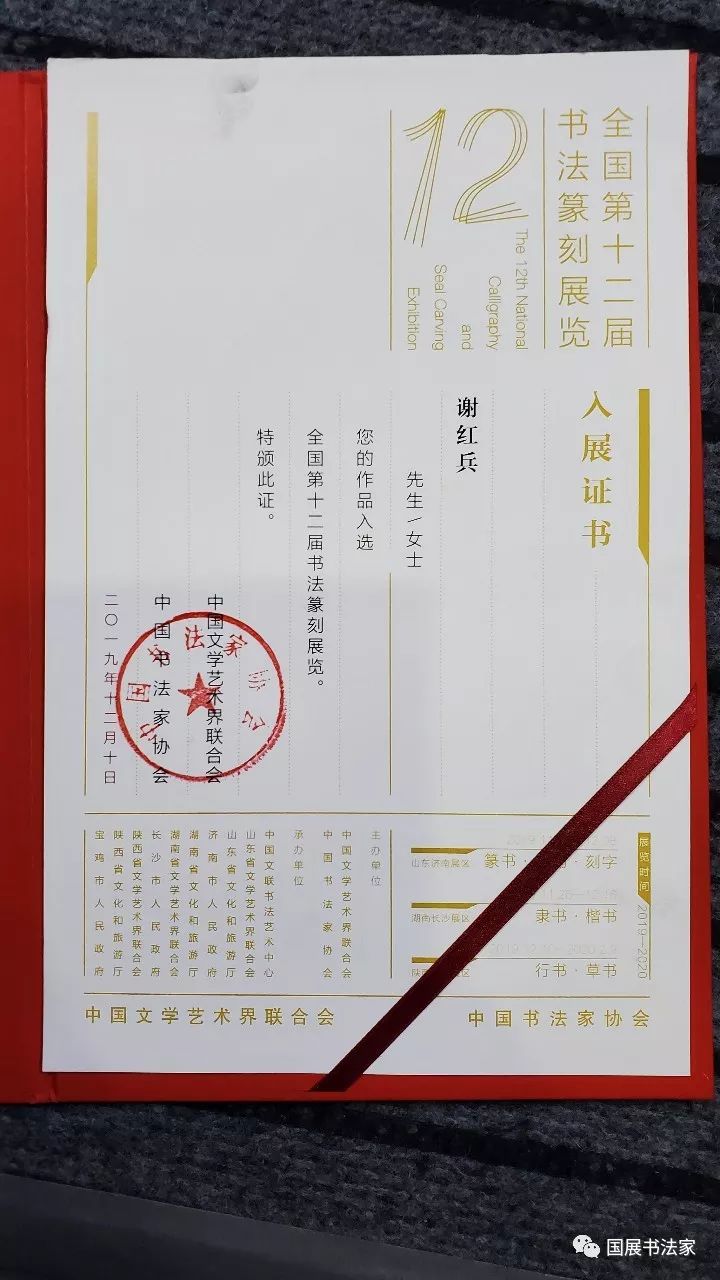 全国第十二届
书法篆刻展览
12
The 12th National
Calligraphy
and
Seal Carving
Exhibition
入展证书
谢红兵
先生/女士
您的作品入选
全国第十二届书法篆刻展览。
特颁此证。
中国文学艺术界联合会
中国书法家协会
二〇一九年十二月十日
中国书法家协会
展览时间 2019—2020
山东济南展区
篆书· ·刻字
湖南长沙展区
隶书·楷书
陕 区
行书·草书
主办单位
中国文学艺术界联合会
中国书法家协会
承办单位
中国文联书法艺术中心
山东省文学艺术界联合会
山东省文化和旅游厅
济南市人民政府
湖南省文化和旅游厅
湖南省文学艺术界联合会
长沙市人民政府
陕西省文学艺术界联合会
陕西省文化和旅游厅
宝鸡市人民政府
中国文学艺术界联合会
中国书法家协会
国展书法家